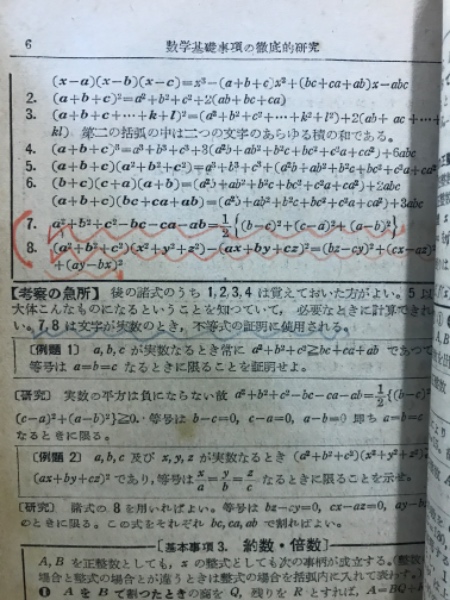 6 数学基礎事項の徹底的研究
(x−a)(x−b)(x−c)=x³−(a+b+c)x²+(bc+ca+ab)x−abc
2. (a+b+c)²=a²+b²+c²+2(ab+bc+ca)
3. (a+b+c+⋯+k+l)²=(a²+b²+c²+⋯+k²+l²)+2(ab+ac+⋯+
kl) 第二の括弧の中は二つの文字のあらゆる積の和である。
4. (a+b+c)³=a³+b³+c³+3(a²b+ab²+b²c+bc²+c²a+ca²)+6abc
5. (a+b+c)(a²+b²+c²)=a³+b³+c³+(a²b+ab²+b²c+bc²+c²a+ca²)
6. (b+c)(c+a)(a+b)=(a²b+ab²+b²c+bc²+c²a+ca²)+2abc
(a+b+c)(bc+ca+ab)=(a²b+ab²+b²c+bc²+c²a+ca²)+3abc
7. a²+b²+c²−bc−ca−ab=1/2{(b−c)²+(c−a)²+(a−b)²}
8. (a²+b²+c²)(x²+y²+z²)−(ax+by+cz)²=(bz−cy)²+(cx−az)²
+(ay−bx)²
【考察の急所】 後の諸式のうち 1, 2, 3, 4 は覚えておいた方がよい。5
大体こんなものになるということを知っていて, 必要なときに計算でき
い。7, 8 は文字が実数のとき, 不等式の証明に使用される。
〔例題 1〕 a, b, c が実数なるとき常に a²+b²+c²≧bc+ca+ab であつて
等号は a=b=c なるときに限ることを証明せよ。
〔研究〕 実数の平方は負にならない故 a²+b²+c²−bc−ca−ab=1/2{(b−c)²
(c−a)²+(a−b)²}≧0. 等号は b−c=0, c−a=0, a−b=0 即ち a=b=c
なるときに限る。
〔例題 2〕 a, b, c 及び x, y, z が実数なるとき (a²+b²+c²)(x²+y²+z²)≧
(ax+by+cz)² であり, 等号は x/a=y/b=z/c なるときに限ることを示せ。
〔研究〕 諸式の 8 を用いればよい。等号は bz−cy=0, cx−az=0, ay−b
のときに限る。この式をそれぞれ bc, ca, ab で割ればよい。
〔基本事項 3. 約数・倍数〕
A, B を正整数としても, x の整式としても次の事柄が成立する。(整数
場合と整式の場合とが違うときは整式の場合を括弧内に入れて表わす。)
❶ A を B で割つたときの商を Q, 残りを R とすれば, A=BQ+